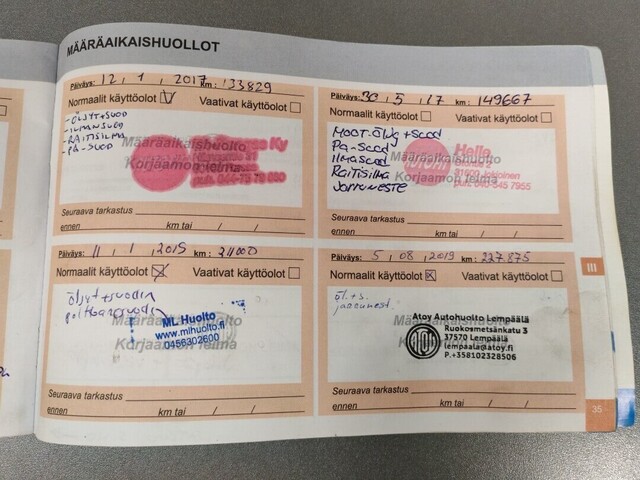 MÄÄRÄAIKAISHUOLLOT
Päiväys: 12 , 1 , 2017 km: 133829
Normaalit käyttöolot Vaativat käyttöolot
- ÖLJYT+SUOD
- ILMANSUOD
- RAITISILMA
- PA-SUOD
Määräaikaishuolto
Korjaamon leima
Seuraava tarkastus
ennen km tai / /
Päiväys: 30 , 5 , 17 km: 149667
Normaalit käyttöolot Vaativat käyttöolot
MOOT.ÖLJY+SUOD
PA-SUOD
ILMASUOD
RAITISILMA
JARRUNESTE
Määräaikaishuolto
Korjaamon leima
Hella
31600 Jokioinen
puh. 040-545 7955
Seuraava tarkastus
ennen km tai / /
Päiväys: 11 , 1 , 2019 km: 211000
Normaalit käyttöolot Vaativat käyttöolot
öljyt+suodin
Määräaikaishuolto
Korjaamon leima
ML Huolto
www.mlhuolto.fi
0456302600
Seuraava tarkastus
ennen km tai / /
Päiväys: 5 , 08 , 2019 km: 227.875
Normaalit käyttöolot Vaativat käyttöolot
öl.+s.
jarrunest.
Määräaikaishuolto
Korjaamon leima
Atoy Autohuolto Lempäälä
Ruokosmetsänkatu 3
37570 Lempäälä
lempaala@atoy.fi
P.+358102328506
Seuraava tarkastus
ennen km tai / /
III
35